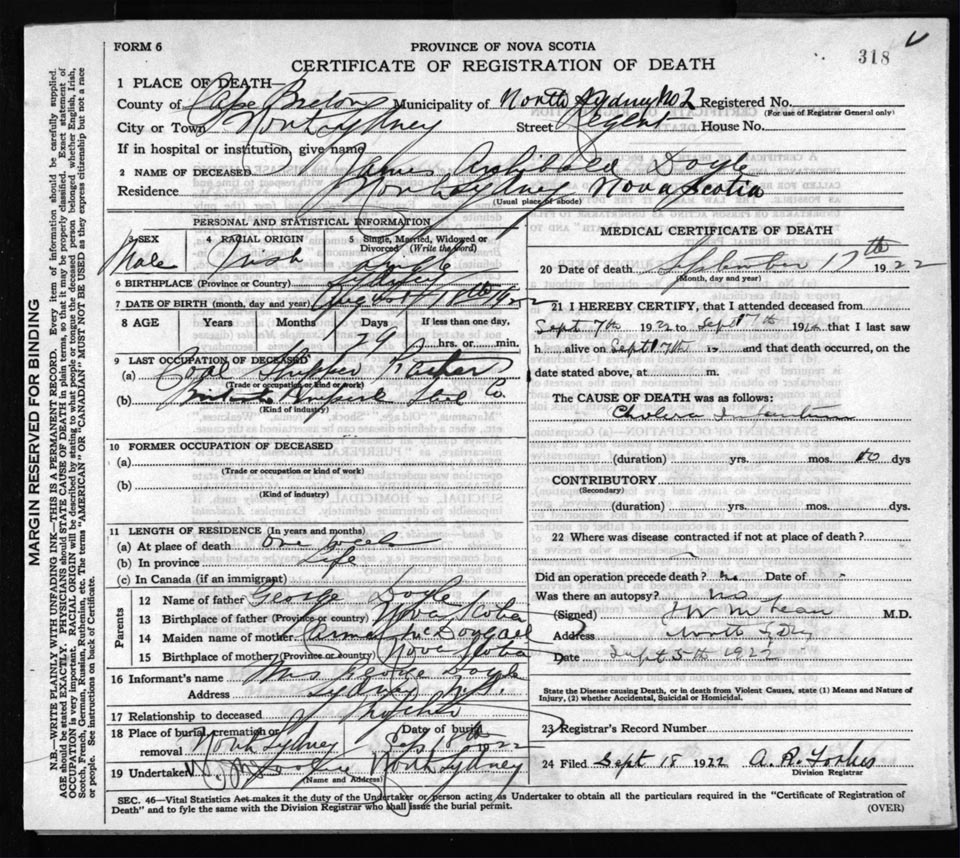 FORM 6
PROVINCE OF NOVA SCOTIA
318
CERTIFICATE OF REGISTRATION OF DEATH
1 PLACE OF DEATH—
County of Cape Breton Municipality of North Sydney No 2 Registered No.
(For use of Registrar General only)
City or Town North Sydney Street Regent House No.
If in hospital or institution, give name
2 NAME OF DECEASED James Archibald Doyle
Residence North Sydney Nova Scotia
(Usual place of abode)
PERSONAL AND STATISTICAL INFORMATION
SEX 4 RACIAL ORIGIN 5 Single, Married, Widowed or Divorced (Write the word)
Male Irish Single
6 BIRTHPLACE (Province or Country) Sydney
7 DATE OF BIRTH (month, day and year) August 18th 1922
8 AGE Years Months Days If less than one day,
29 hrs. or min.
9 LAST OCCUPATION OF DECEASED
(a) Coal Shipper
(Trade or occupation or kind of work)
(b) British Empire Steel Co.
(Kind of industry)
10 FORMER OCCUPATION OF DECEASED
(a)
(Trade or occupation or kind of work)
(b)
(Kind of industry)
11 LENGTH OF RESIDENCE (In years and months)
(a) At place of death One week
(b) In province Life
(c) In Canada (if an immigrant)
Parents
12 Name of father George Doyle
13 Birthplace of father (Province or country) Nova Scotia
14 Maiden name of mother McDougall
15 Birthplace of mother (Province or country) Nova Scotia
16 Informant's name Mrs George Doyle
Address Sydney
17 Relationship to deceased
18 Place of burial, cremation or removal North Sydney Date of burial Sept 18th 1922
19 Undertaker North Sydney
(Name and Address)
MEDICAL CERTIFICATE OF DEATH
20 Date of death September 17th 1922
(Month, day and year)
21 I HEREBY CERTIFY, that I attended deceased from
Sept 7th 1922 to Sept 17th 19 that I last saw
h alive on Sept 17th 19 and that death occurred, on the
date stated above, at m.
The CAUSE OF DEATH was as follows:
Cholera Infantum
(duration) yrs. mos. 10 dys
CONTRIBUTORY
(Secondary)
(duration) yrs. mos. dys.
22 Where was disease contracted if not at place of death?
Did an operation precede death? No Date of -
Was there an autopsy? No
(Signed) M.D.
Address North Sydney
Date Sept 1922
State the Disease causing Death, or in death from Violent Causes, state (1) Means and Nature of
Injury, (2) whether Accidental, Suicidal or Homicidal.
23 Registrar's Record Number
24 Filed Sept 18 1922 A. R. Forbes
Division Registrar
SEC. 46—Vital Statistics Act makes it the duty of the Undertaker or person acting as Undertaker to obtain all the particulars required in the "Certificate of Registration of
Death" and to fyle the same with the Division Registrar who shall issue the burial permit.
(OVER)
MARGIN RESERVED FOR BINDING
N.B.—WRITE PLAINLY WITH UNFADING INK—THIS IS A PERMANENT RECORD. Every item of information should be carefully supplied.
AGE should be stated EXACTLY. PHYSICIANS should STATE CAUSE OF DEATH in plain terms, so that it may be properly classified. Exact statement of
OCCUPATION is very important. RACIAL ORIGIN will be described by stating to what people or tongue the deceased person belonged, whether English, Irish,
Scotch, French, German, Russian, Ruthenian, etc. The terms "AMERICAN" OR "CANADIAN" MUST NOT BE USED as they express citizenship but not a race
or people. See instructions on back of Certificate.